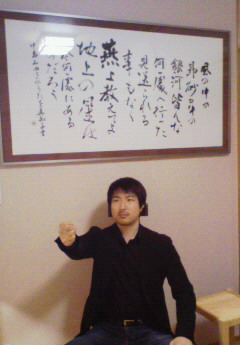 風の中の
昴砂の中の
銀河皆んな
何處へ行った
見送られる
事もなく
燕よ教えてよ
地上の星は
今何處にある
のだろう